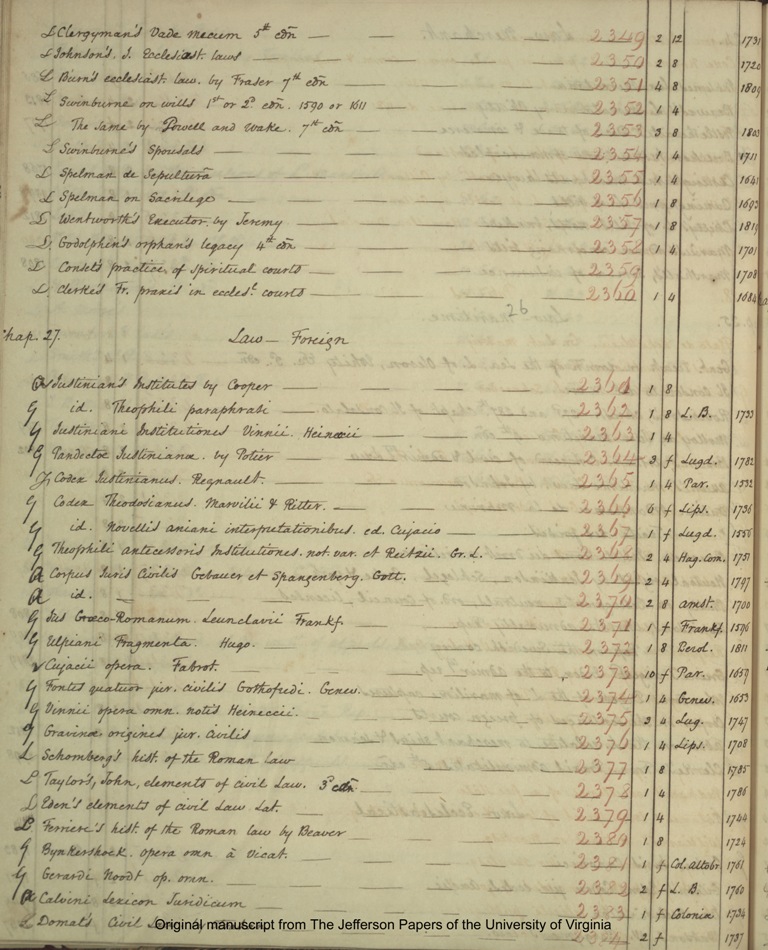 L Clergyman's Vade mecum 5th edn — 2349 2 12 1731
L Johnson's. J. Ecclesiast. laws 2350 2 8 1720
L Burn's ecclesiast. law. by Fraser 7th edn — 2351 4 8 1809
L Swinburne on wills 1st or 2d edn. 1590 or 1611 2352 1 4
L The same by Powell and Wake. 7th edn — 2353 3 8 1803
L Swinburne's Spousals — 2354 1 4 1711
L Spelman de Sepulturâ — 2355 1 4 1641
L Spelman on Sacrilege — 2356 1 8 1693
L Wentworth's Executor. by Jeremy — 2357 1 8 1819
L. Godolphin's orphan's legacy 4th edn 2358 1 4 1701
L Conset's practice of spiritual courts — 2359 1708
L. Clerke's Fr. praxis in eccles.l courts — 2360 1 4 1684
26
Chap. 27. Law — Foreign
Justinian's Institutes by Cooper — 2361 1 8
G id. Theophili paraphrasi — 2362 1 8 L. B. 1733
G Justiniani Institutiones Vinnii. Heineccii — 2363 1 4
G Pandectæ Justinianæ. by Potier — 2364 3 f Lugd. 1782
G Codex Justinianus. Regnault. — 2365 1 4 Par. 1532
G Codex Theodosianus. Marvilii & Ritter. — 2366 6 f Lips. 1736
G id. Novellis aniani interpretationibus. ed. Cujacio — 2367 1 f Lugd. 1556
G Theophili antecessoris Institutiones. not. var. et Reitzii. Gr. L. 2368 2 4 Hag. Com. 1751
A Corpus Juris Civilis Gebauer et Spangenberg. Gott. 2369 2 4 1797
A id. — 2370 2 8 amst. 1700
G Jus Græco-Romanum. Leunclavii Frankf. 2371 1 f Frankf. 1596
G Ulpiani Fragmenta. Hugo. — 2372 1 8 Berol. 1811
Cujacii opera. Fabrot. — 2373 10 f Par. 1659
G Fontes quatuor jur. civilis Gothofredi. Genev. 2374 1 4 Genev. 1653
G Vinnii opera omn. notis Heineccii. — 2375 3 4 Lug. 1747
G Gravinæ origines jur. civilis 2376 1 4 Lips. 1708
L Schomberg's hist. of the Roman law 2377 1 8 1785
L Taylor's, John, elements of civil Law. 3d edn. 2378 1 4 1786
L Eden's elements of civil Law Lat. — 2379 1 4 1744
L Ferriere's hist. of the Roman law by Beaver — 2380 1 8 1724
G Bynkershoek. opera omn à Vicat. — 2381 1 f Col. Allobr. 1761
G Gerardi Noodt op. omn. — 2382 2 f L. B. 1760
A Calvini Lexicon Juridicum — 2383 1 f Colonia 1734
L Domat's Civil 2384 2 f 1737
Original manuscript from The Jefferson Papers of the University of Virginia